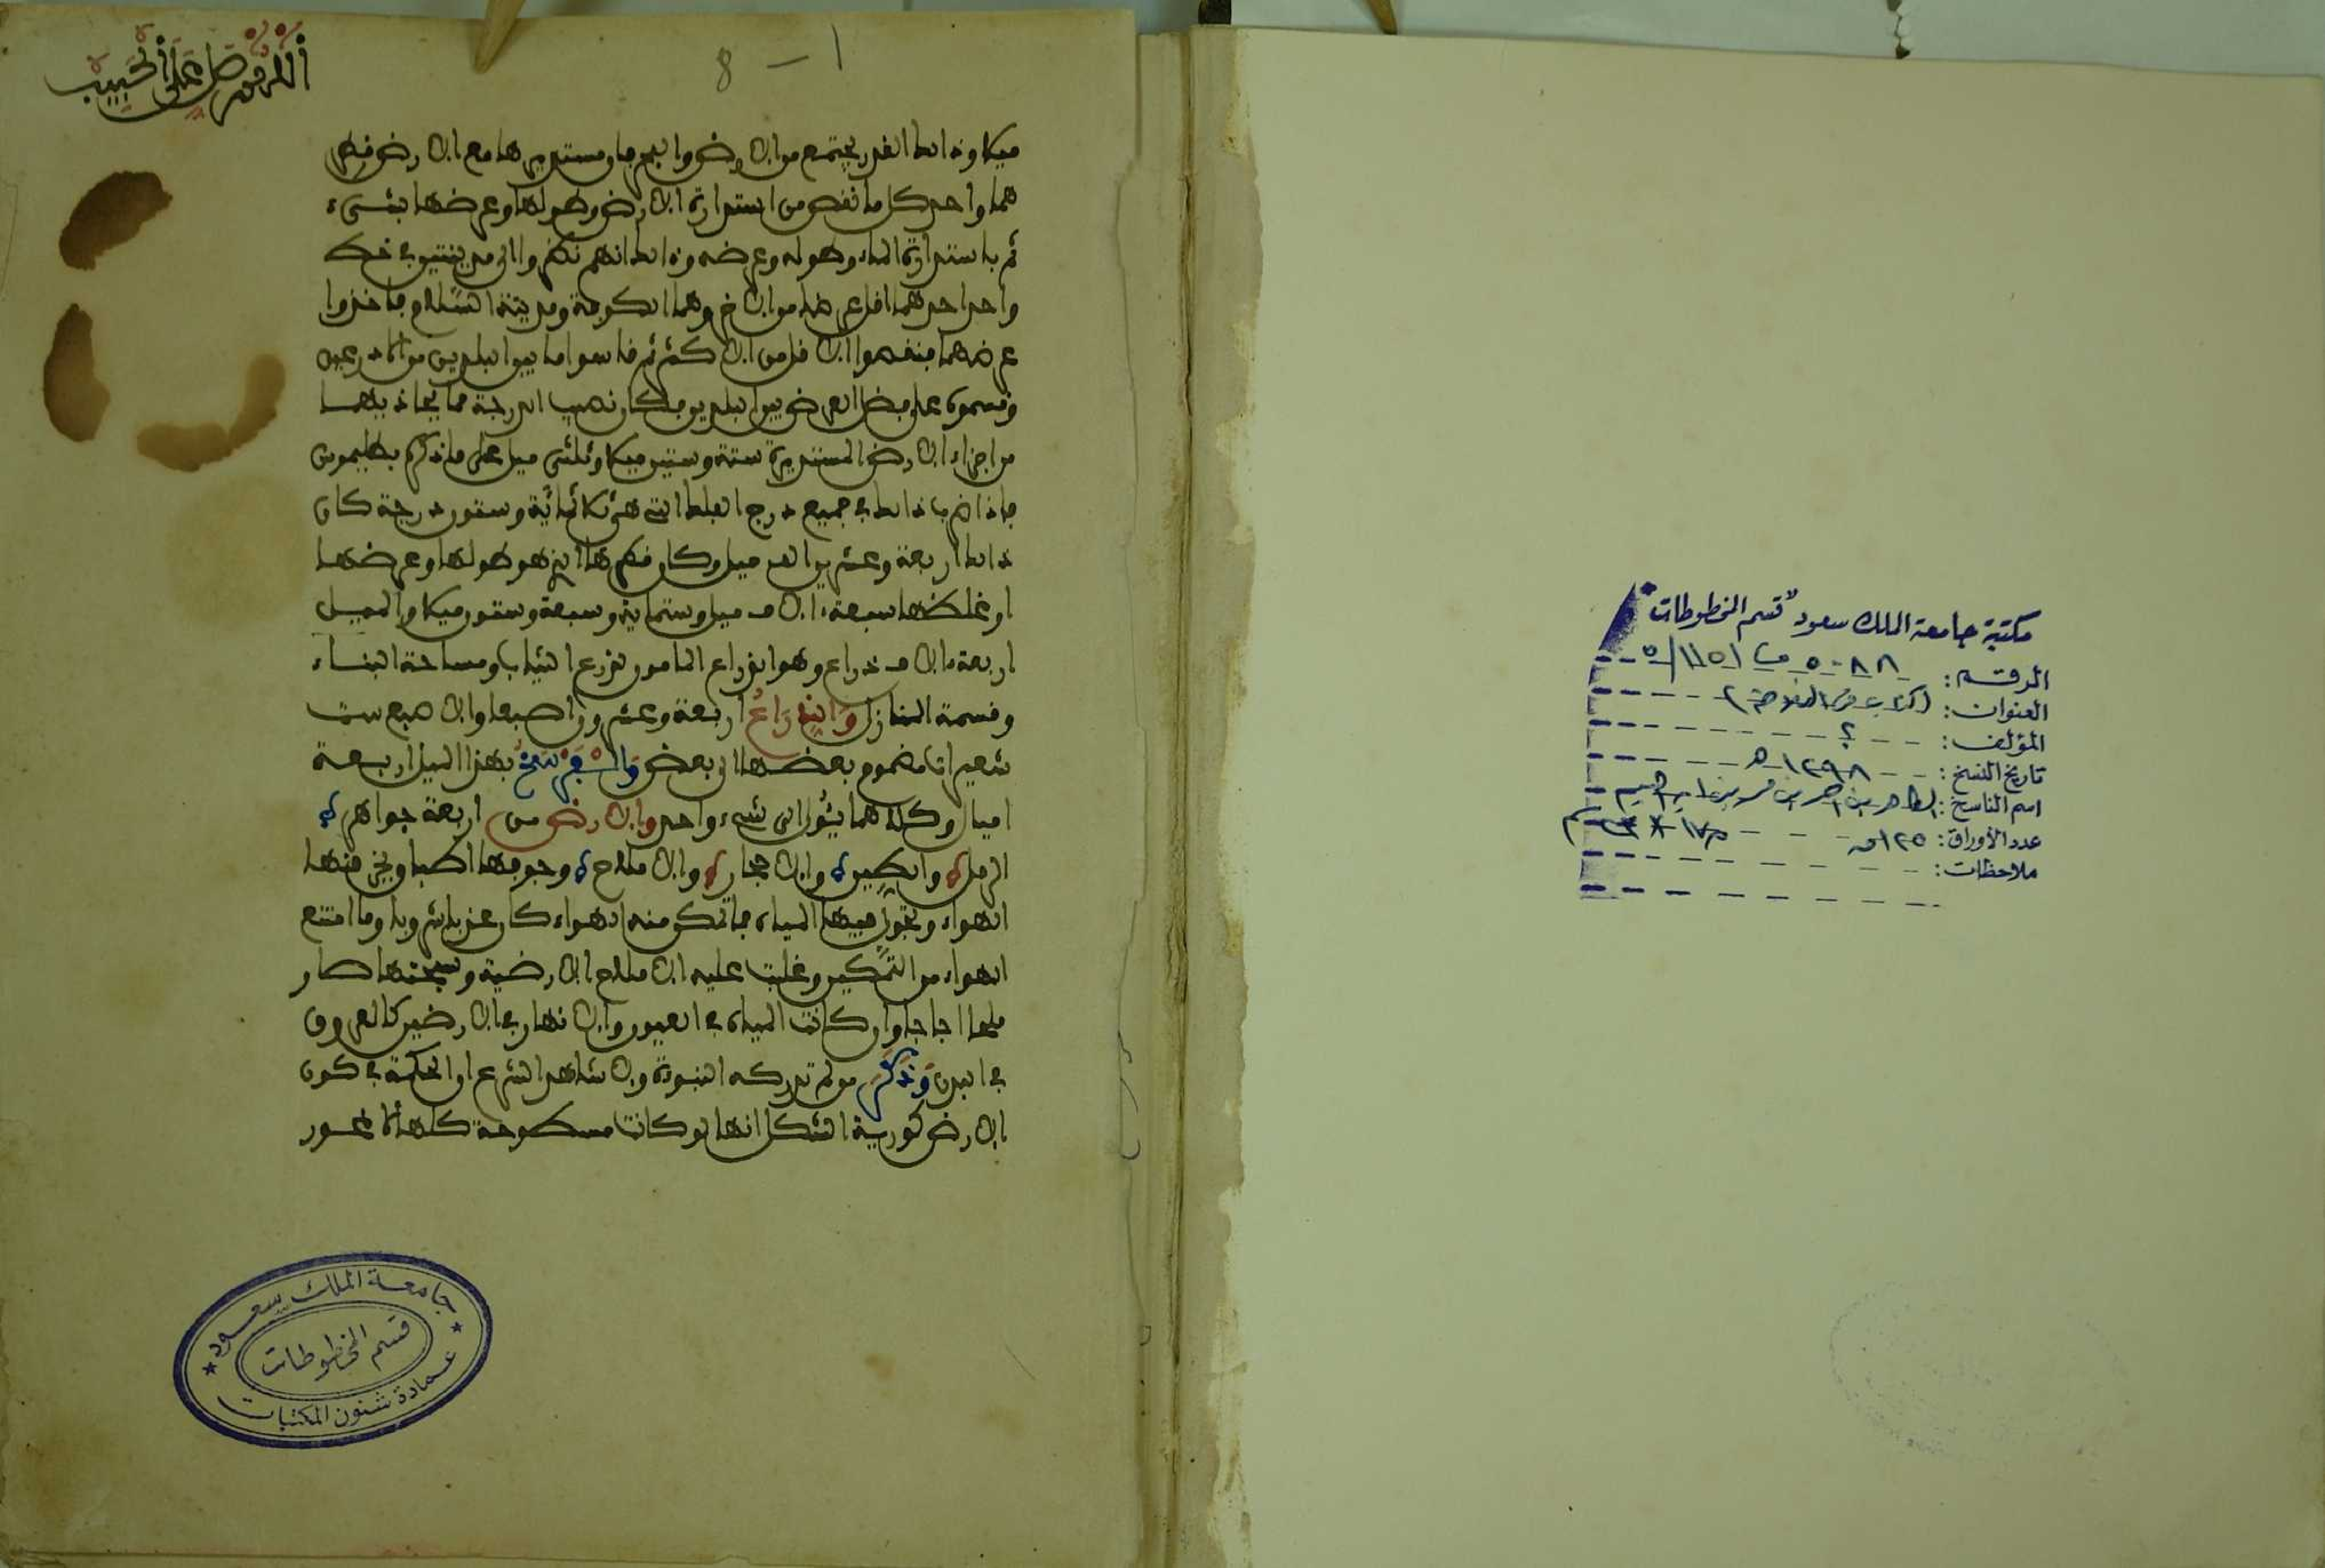 اللهم صل على الحبيب
8 — 1
ميلا وذلك القدر يجتمع من الارض والبحر جاء مستديرها مع الارض قطر
هما واحد كل ما نقص من استدارة الارض وطولها وعرضها بشيء
ثم باستدارة الماء وطوله وعرضه وذلك انهم نظروا الى مدينتين في خط
واحد احدهما اقل عرضا من الاخر وهما الكوفة ومدينة السلام فاخذوا
عرضهما فنقصوا الاقل من الاكثر ثم قاسوا ما بين البلدين من الاذرعين
وقسموه على فضل العرض بين البلدين فكان نصيب الدرجة مما يحاذيها
من اجزاء الارض المستديرة ستة وستين ميلا وثلثي ميل على ما ذكر بطليموس
فاذا ضرب ذلك في جميع درج الفلك التي هي ثلاثمائة وستون درجة كان
ذلك اربعة وعشرين الف ميل وكان قطرها الذي هو طولها وعرضها
او غلظها سبعة الاف ميل وستماية وسبعة وستون ميلا والميل
اربعة الاف ذراع وهو بذراع المامون لذرع الثياب ومساحة البناء
وقسمة المنازل والذراع اربعة وعشرون اصبعا والاصبع ست
شعيرات مضموم بعضها الى بعض والفرسخ بهذا الميل اربعة
اميال وكلاهما يئول الى شيء واحد والارض من اربعة جواهر
الرمل والطين والاحجار والاملاح وجوفها اطباق يخرقها
الهواء وتجول فيها المياه فما تمكن منه الهواء كان عذبا شروبا وما امتنع
الهواء من التمكين وغلبت عليه الاملاح الارضية وسبختها صار
ملحا اجاجا وان كانت المياه في العيون والانهار في الارضين كالعروق
في البدن وذكر من لم تدركه النبوة ولا شاهد الشرع ان الحكمة في كون
الارض كورية الشكل انها لو كانت مسطوحة كلها لا غور
جامعة الملك سعود
قسم المخطوطات
عمادة شئون المكتبات
مكتبة جامعة الملك سعود "قسم المخطوطات"
الرقم: ٥٠٨٨
العنوان: (كتاب في الفلاحة)
المؤلف: ؟
تاريخ النسخ: ١٢٩٨ هـ
اسم الناسخ: الطاهر بن احمد بن ابراهيم
عدد الأوراق: ١٢٥ ق
ملاحظات: